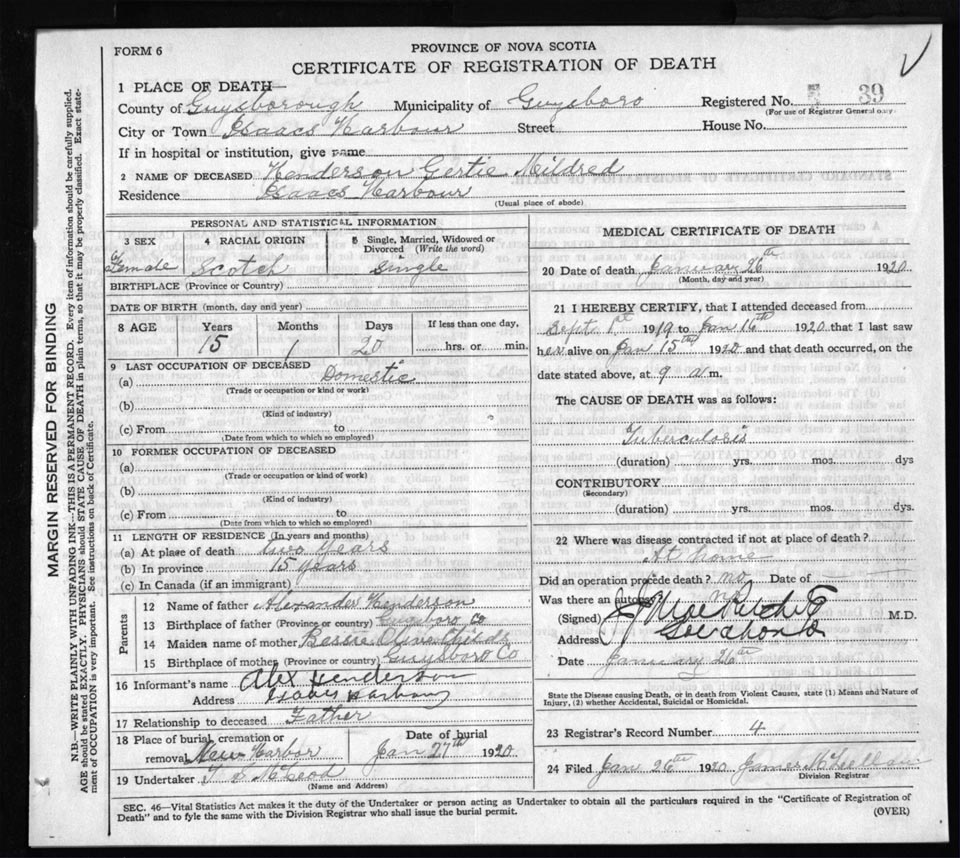 FORM 6
PROVINCE OF NOVA SCOTIA
CERTIFICATE OF REGISTRATION OF DEATH
1 PLACE OF DEATH—
County of Guysborough Municipality of Guysboro Registered No. 39
(For use of Registrar General only
City or Town Isaacs Harbour Street House No.
If in hospital or institution, give name
2 NAME OF DECEASED Henderson Gertie Mildred
Residence Isaacs Harbour
(Usual place of abode)
PERSONAL AND STATISTICAL INFORMATION
3 SEX 4 RACIAL ORIGIN 5 Single, Married, Widowed or
Divorced (Write the word)
Female Scotch Single
BIRTHPLACE (Province or Country)
DATE OF BIRTH (month, day and year)
8 AGE Years Months Days If less than one day,
15 1 20 hrs. or min.
9 LAST OCCUPATION OF DECEASED
(a) Domestic
(Trade or occupation or kind of work)
(b)
(Kind of industry)
(c) From to
(Date from which to which so employed)
10 FORMER OCCUPATION OF DECEASED
(a)
(Trade or occupation or kind of work)
(b)
(Kind of industry)
(c) From to
(Date from which to which so employed)
11 LENGTH OF RESIDENCE (In years and months)
(a) At place of death two years
(b) In province 15 years
(c) In Canada (if an immigrant)
Parents
12 Name of father Alexander Henderson
13 Birthplace of father (Province or country) Guysboro Co
14 Maiden name of mother Bessie
15 Birthplace of mother (Province or country) Guysboro Co
16 Informant's name Alex Henderson
Address Isaacs Harbour
17 Relationship to deceased Father
18 Place of burial, cremation or Date of burial
removal New Harbor Jan 27th 1920
19 Undertaker McLeod
(Name and Address)
MEDICAL CERTIFICATE OF DEATH
20 Date of death January 26th 1920
(Month, day and year)
21 I HEREBY CERTIFY, that I attended deceased from
Sept 1st 1919 to Jan 16th 1920 that I last saw
her alive on Jan 15th 1920 and that death occurred, on the
date stated above, at 9 a m.
The CAUSE OF DEATH was as follows:
Tuberculosis
(duration) yrs. mos. dys
CONTRIBUTORY
(Secondary)
(duration) yrs. mos. dys.
22 Where was disease contracted if not at place of death?
At home
Did an operation precede death? no Date of
Was there an autopsy? no
(Signed) M.D.
Address
Date January 26th
State the Disease causing Death, or in death from Violent Causes, state (1) Means and Nature of
Injury, (2) whether Accidental, Suicidal or Homicidal.
23 Registrar's Record Number 4
24 Filed Jan 26th 1920 James
Division Registrar
SEC. 46—Vital Statistics Act makes it the duty of the Undertaker or person acting as Undertaker to obtain all the particulars required in the "Certificate of Registration of
Death" and to fyle the same with the Division Registrar who shall issue the burial permit.
(OVER)
MARGIN RESERVED FOR BINDING
N.B.—WRITE PLAINLY WITH UNFADING INK—THIS IS A PERMANENT RECORD. Every item of information should be carefully supplied.
AGE should be stated EXACTLY. PHYSICIANS should STATE CAUSE OF DEATH in plain terms, so that it may be properly classified. Exact state-
ment of OCCUPATION is very important. See instructions on back of Certificate.